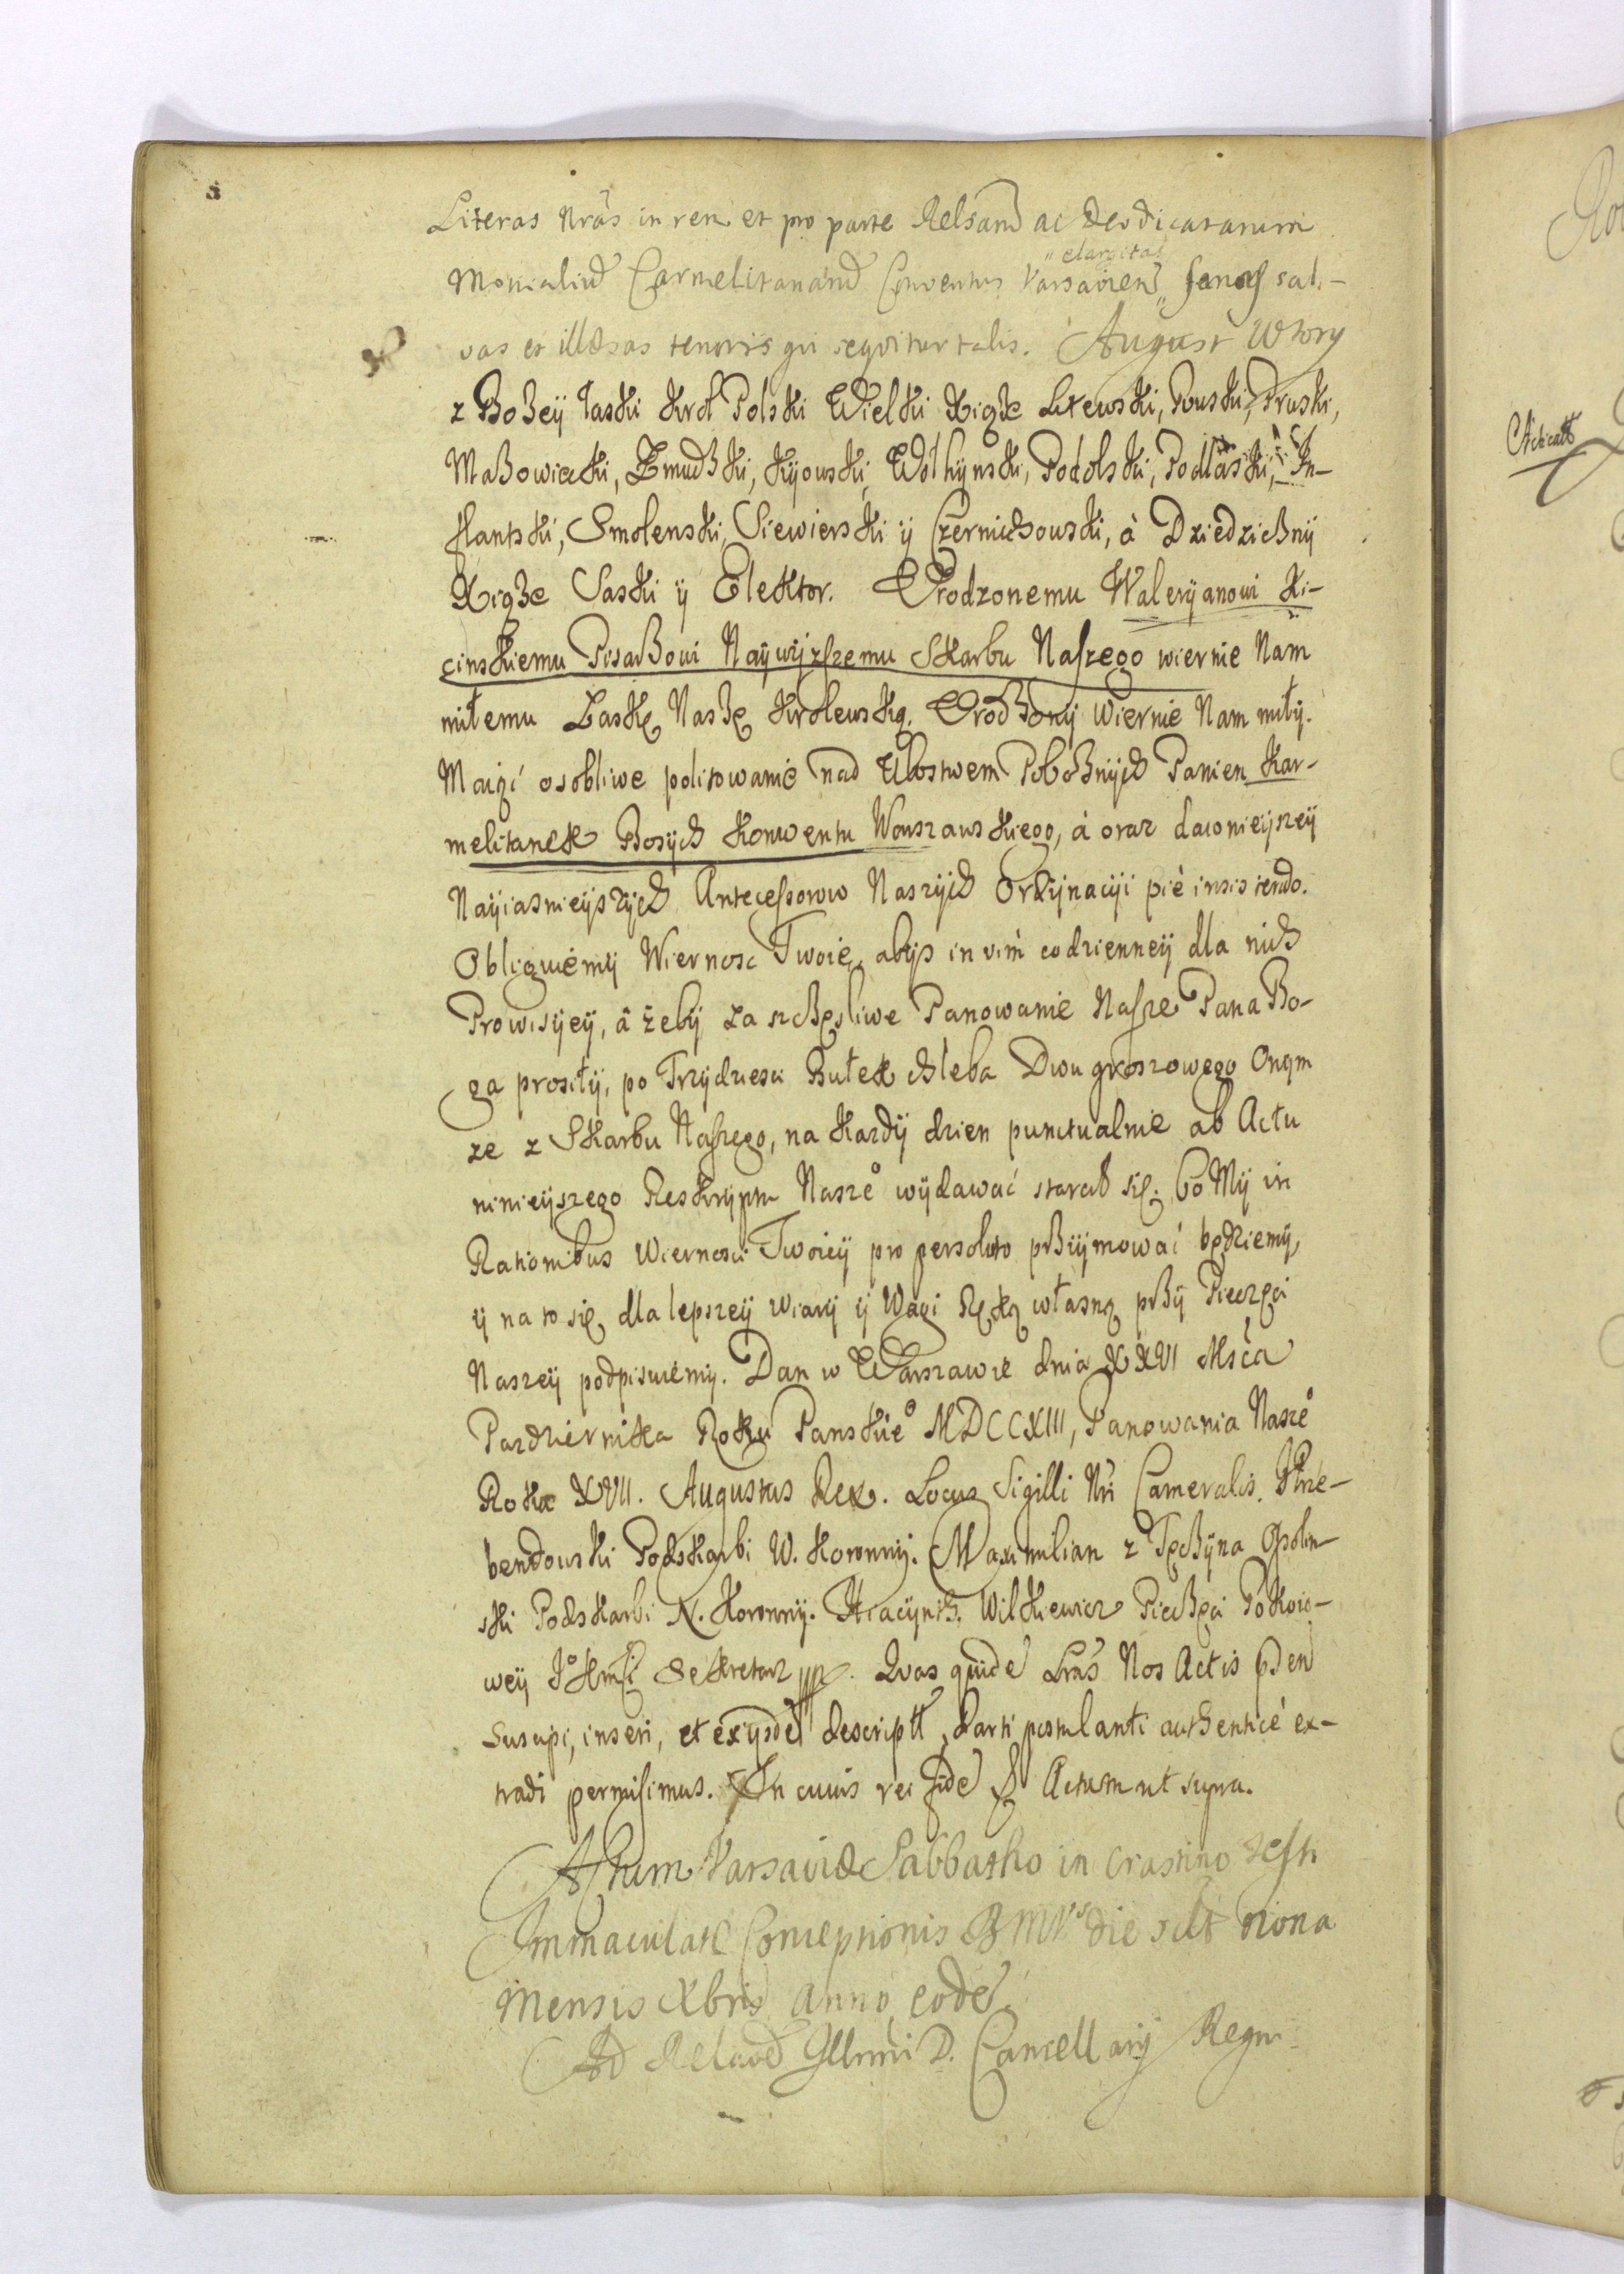 Literas Nrās in rem et pro parte Relsarū ac Deodicatarum
" elargitas
Monialiū Carmelitanarū Conventus Varsavien " sanas sal-
vas et illæsas tenoris qui sequitur talis. August Wtory
z Bożeÿ łaski Krol Polski Wielki Xiąże Litewski, Rouski, Pruski,
Mazowiecki, Zmudzki, Kÿowski, Wołhÿnski, Podolski, Podlaski, In-
flantski, Smolenski, Siewierski ÿ Czernichowski, à Dziedzicznÿ
Xiąże Saski ÿ Elektor. Urodzonemu Walerÿanowi Ki-
cinskiemu Pisarzowi Naÿwÿzszemu Skarbu Naszego wiernie Nam
miłemu Łaskę Naszę Krolewską. Urodzonÿ Wiernie Nam miłÿ.
Maiąć osobliwe politowanie nad Ubostwem Poboznÿch Panien Kar-
melitanek Bosÿch Konwentu Warszawskiego, à oraz dawnieÿszeÿ
Naÿiasnieÿszÿch Antecessorow Naszÿch Ordÿnacÿi piè insistendo.
Obliguiemÿ Wiernosc Twoię, abÿs in vim codzienneÿ dla nich
Prowisÿeÿ, à żebÿ za szczęsliwe Panowanie Nasze Pana Bo-
ga prosiłÿ, po Trzÿdziesci Bułek chleba Dwu groszowego Onym
ze z Skarbu Naszego, na kazdÿ dzien punctualnie ab Actu
ninieÿszego Reskrÿptu Naszeº wÿdawać starał się. Co Mÿ in
Rationibus Wiernosci Twoieÿ pro persoluto przÿimować będziemÿ,
ÿ na to się dla lepszeÿ wiarÿ ÿ Wagi Ręką własną przÿ Pieczęci
Naszeÿ podpisuiemÿ. Dan w Warszawie dnia XXVI Msca
Pazdziernika Roku Panskieº MDCCXIII, Panowania Naszeº
Roku XVII. Augustus Rex. Locus Sigilli Nri Cameralis. Prze-
bendowski Podskarbi W. Koronnÿ. Maximilian z Tęczÿna Ossolin-
ski Podskarbi N. Koronnÿ. Hiacÿnth Wilkiewicz Pieczęci Pokoio-
weÿ Jº Kmsci Sekretarz mp. Quas quidē Lrās Nos Actis pden
Suscipi, inseri, et exijsdē descriptt, parti postulanti authenticè ex-
tradi permisimus. In cuius rei fidē & Actum ut supra.
Actum Varsaviæ Sabbatho in crastino Festi
Immaculatæ Conceptionis B M Vˢ die scilt nona
Mensis Xbris anno eodē
Ad Relaoē Illrmi D. Cancellarij Regni